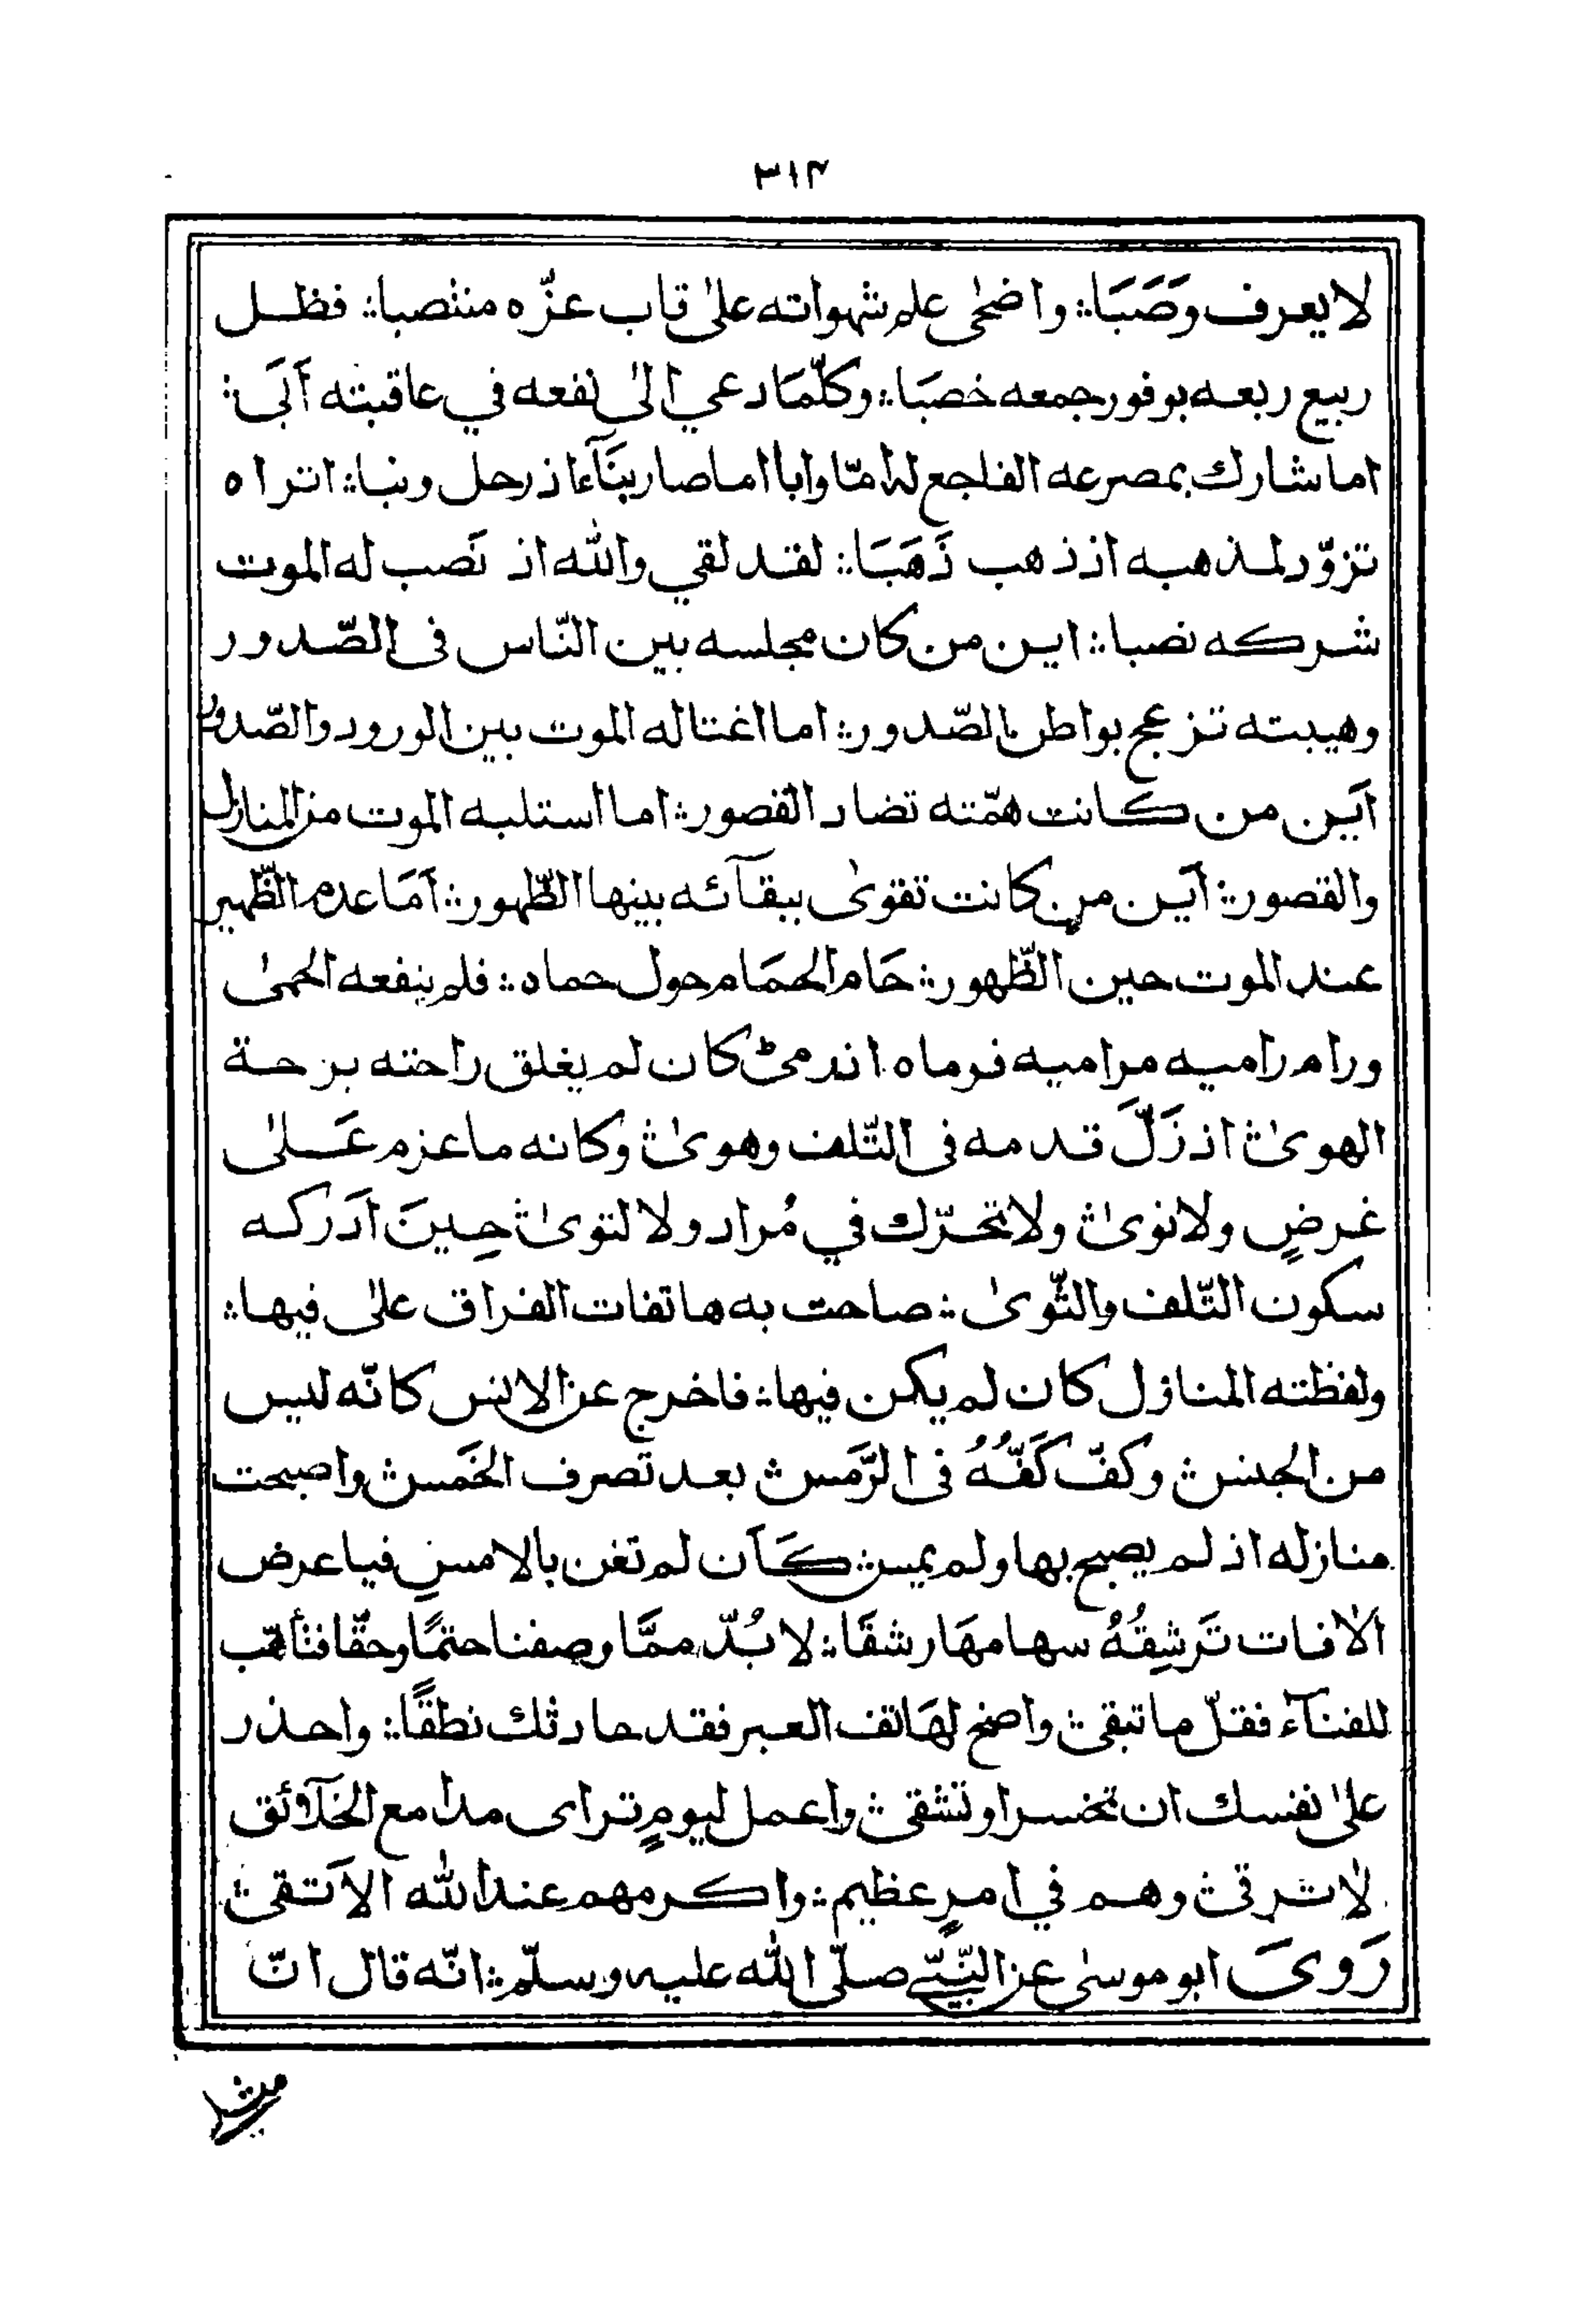 ٣١٤
لا يعرف وَصَبَا ؞ واضحٰى علم شهواته علىٰ قاب عزّه منتصبا ؞ فظل
ربيع ربعه بوفور جمعه خصبَا ؞ وكلّمَا دعي الىٰ نفعه في عاقبته اَبَى ؞
اما شارك بمصرعه الفاجع له امّا وابا اما صار بنَآءَ اذ رحل ونبا ؞ اتراه
تزوّد لمذهبه اذ ذهب ذَهَبَا ؞ لقد لقي والله اذ نَصب له الموت
شركه نصبا ؞ اين من كان مجلسه بين النّاس فى الصّدور
وهيبته تزعج بواطن الصّدور ؞ اما اغتاله الموت بين الورود والصّدور
اَين من كانت همّته تضاد القصور ؞ اما استلبه الموت من المنازل
والقصور ؞ اَين من كانت تقوىٰ ببقآئه بينها الظّهور ؞ اَمَا عدم الظّهير
عند الموت حين الظّهور ؞ حَام الحمَام حول حماه ؞ فلم ينفعه الحمىٰ
ورام راميه مراميه فرماه اذ رمىٰ ؞ كان لم يغلق راحته برحة
الهوىٰ ؞ اذ زَلَّ قدمه فى التّلف وهوىٰ ؞ وكانه ما عزم عَلىٰ
غرضٍ ولا نوىٰ ؞ ولا تحرّك في مُراد ولا لتوىٰ ؞ حِينَ اَدَركه
سكون التّلف والثّوىٰ ؞ صاحت به هاتفات الفراق علىٰ فيها ؞
ولفظته المنازل كان لم يكن فيها ؞ فاخرج عن الانس كانّه ليس
من الجنس ؞ وكفّ كَفُّهُ فى الرَّمس ؞ بعد تصرف الخَمس ؞ واصبحت
منازله اذ لم يصبح بها ولم يمس ؞ كَاَن لم تغن بالامسِ فيا عرض
الاٰفات تَرشِقُهُ سهامهَا رشقَا ؞ لا بُدّ ممَّا وصفنا حتمًا وحقّا فتأهّب
للفنآء فقلّ ما تبقى ؞ واصخ لهَاتف العبر فقد حادثك نطقًا ؞ واحذر
علىٰ نفسك ان تخسر او تشقى ؞ واعمل ليومٍ تراى مدا مع الخلآئق
لا ترقى ؞ وهم في امرٍ عظيم ؞ واكرمهم عند الله الاَتقى ؞
رَوىَ ابو موسىٰ عن النّبيّ صلّى الله عليه وسلّم ؞ انّه قال انّ